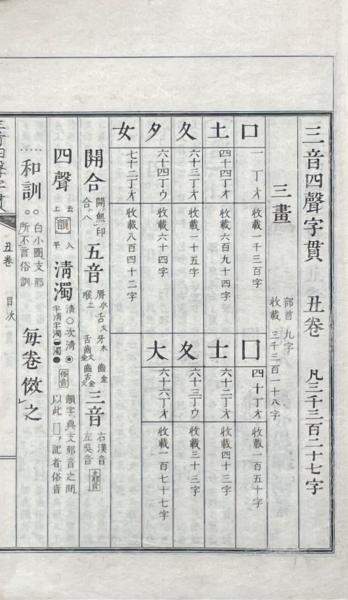 三音四聲字貫 丑卷 凡三千三百二十七字
三畫
部首 九字
收載 三千三百一十八字
口 一丁オ 收載一千三百字
囗 四十丁オ 收載一百五十字
土 四十四丁オ 收載六百九十四字
士 六十二丁オ 收載四十三字
夂 六十三丁オ 收載一十五字
夊 六十三丁ウ 收載三十三字
夕 六十四丁ウ 收載六十四字
大 六十六丁オ 收載一百七十七字
女 七十二丁オ 收載八百四十二字
開合 開無印 合八
五音
三音 右漢音 左吳音
四聲 去 入 上 平 韻
清濁
韻字與支那音之間
以此 記者俗音
和訓 白小圈支那
所不言俗訓
每卷傚之
三音四聲字貫 丑卷 目次